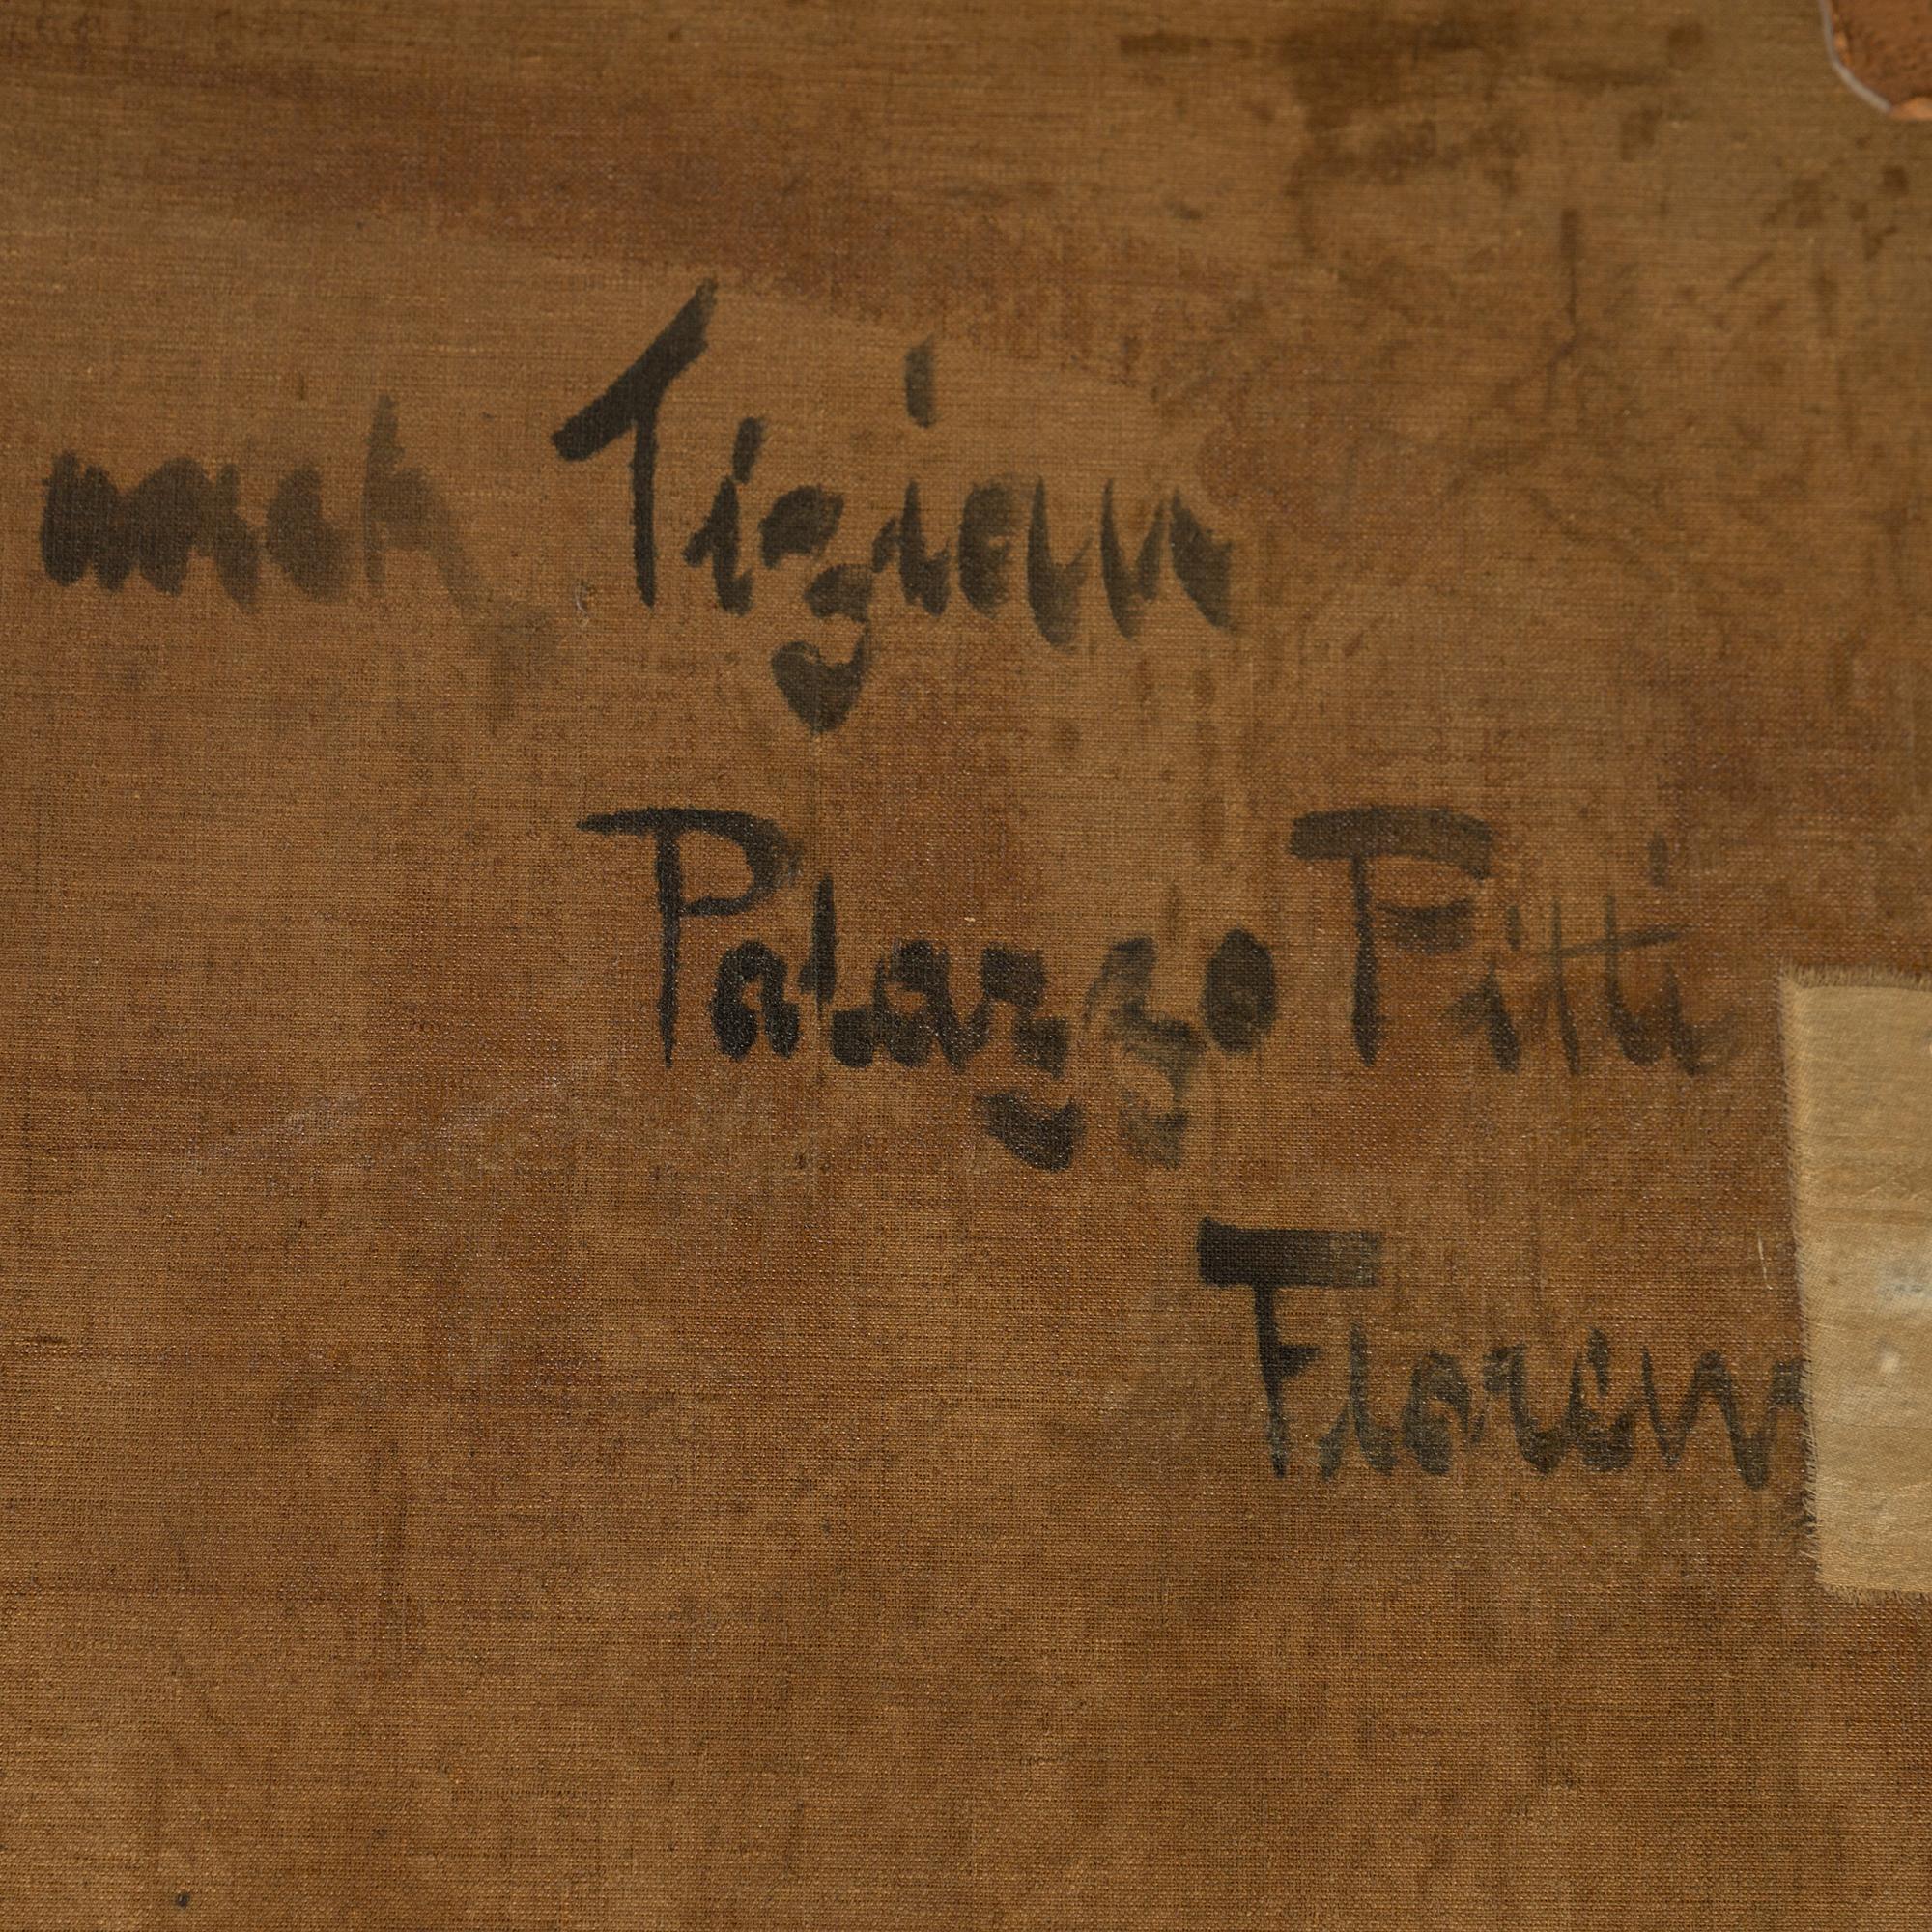 nach Tizian
Palazzo Pitti
Floren